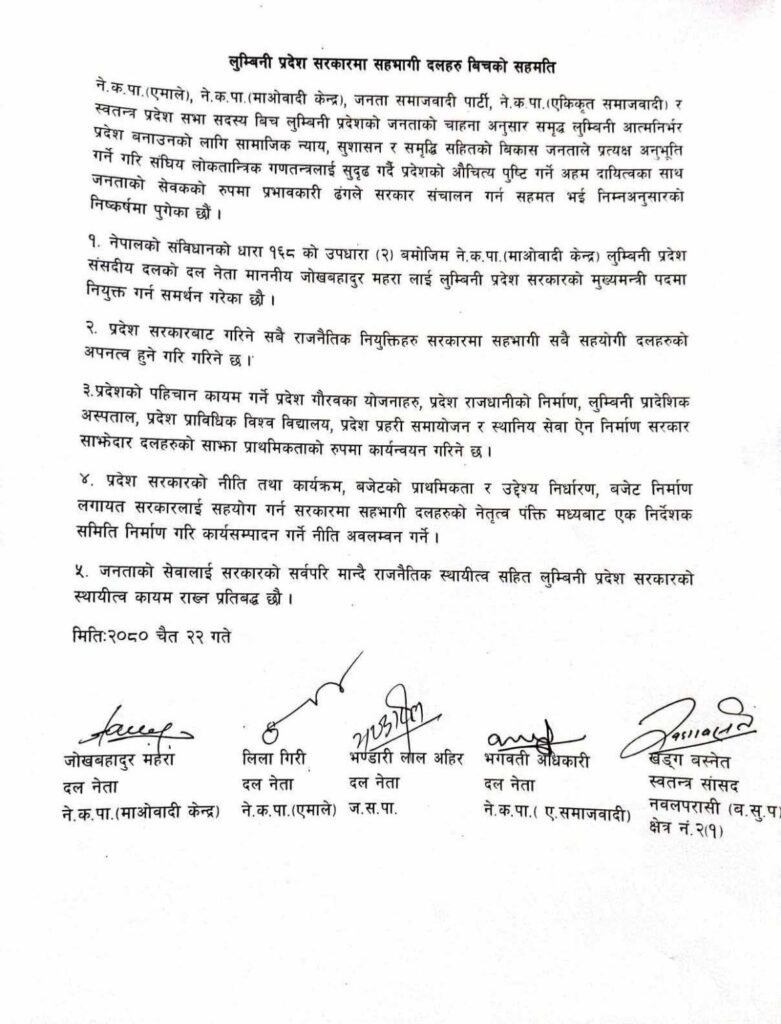 लुम्बिनी प्रदेश सरकारमा सहभागी दलहरु बिचको सहमति
ने.क.पा.(एमाले), ने.क.पा.(माओवादी केन्द्र), जनता समाजवादी पार्टी, ने.क.पा.(एकिकृत समाजवादी) र
स्वतन्त्र प्रदेश सभा सदस्य बिच लुम्बिनी प्रदेशको जनताको चाहना अनुसार समृद्ध लुम्बिनी आत्मनिर्भर
प्रदेश बनाउनको लागि सामाजिक न्याय, सुशासन र समृद्धि सहितको बिकास जनताले प्रत्यक्ष अनुभूति
गर्ने गरि संघिय लोकतान्त्रिक गणतन्त्रलाई सुदृढ गर्दै प्रदेशको औचित्य पुष्टि गर्ने अहम दायित्वका साथ
जनताको सेवकको रुपमा प्रभावकारी ढंगले सरकार संचालन गर्न सहमत भई निम्नअनुसारको
निष्कर्षमा पुगेका छौं ।
१. नेपालको संविधानको धारा १६८ को उपधारा (२) बमोजिम ने.क.पा.(माओवादी केन्द्र) लुम्बिनी प्रदेश
संसदीय दलको दल नेता माननीय जोखबहादुर महरा लाई लुम्बिनी प्रदेश सरकारको मुख्यमन्त्री पदमा
नियुक्त गर्न समर्थन गरेका छौ ।
२. प्रदेश सरकारबाट गरिने सबै राजनैतिक नियुक्तिहरु सरकारमा सहभागी सबै सहयोगी दलहरुको
अपनत्व हुने गरि गरिने छ ।
३.प्रदेशको पहिचान कायम गर्ने प्रदेश गौरवका योजनाहरु, प्रदेश राजधानीको निर्माण, लुम्बिनी प्रादेशिक
अस्पताल, प्रदेश प्राविधिक विश्व विद्यालय, प्रदेश प्रहरी समायोजन र स्थानिय सेवा ऐन निर्माण सरकार
साझेदार दलहरुको साझा प्राथमिकताको रुपमा कार्यन्वयन गरिने छ ।
४. प्रदेश सरकारको नीति तथा कार्यक्रम, बजेटको प्राथमिकता र उद्देश्य निर्धारण, बजेट निर्माण
लगायत सरकारलाई सहयोग गर्न सरकारमा सहभागी दलहरुको नेतृत्व पंक्ति मध्यबाट एक निर्देशक
समिति निर्माण गरि कार्यसम्पादन गर्ने नीति अवलम्वन गर्ने ।
५. जनताको सेवालाई सरकारको सर्वपरि मान्दै राजनैतिक स्थायीत्व सहित लुम्बिनी प्रदेश सरकारको
स्थायीत्व कायम राख्न प्रतिबद्ध छौ ।
मिति:२०८० चैत २२ गते
जोखबहादुर महरा लिला गिरी भण्डारी लाल अहिर भगवती अधिकारी खड्ग बस्नेत
दल नेता दल नेता दल नेता दल नेता स्वतन्त्र सांसद
ने.क.पा.(माओवादी केन्द्र) ने.क.पा.(एमाले) ज.स.पा. ने.क.पा.( ए.समाजवादी) नवलपरासी (ब.सु.प)
क्षेत्र नं.२(१)